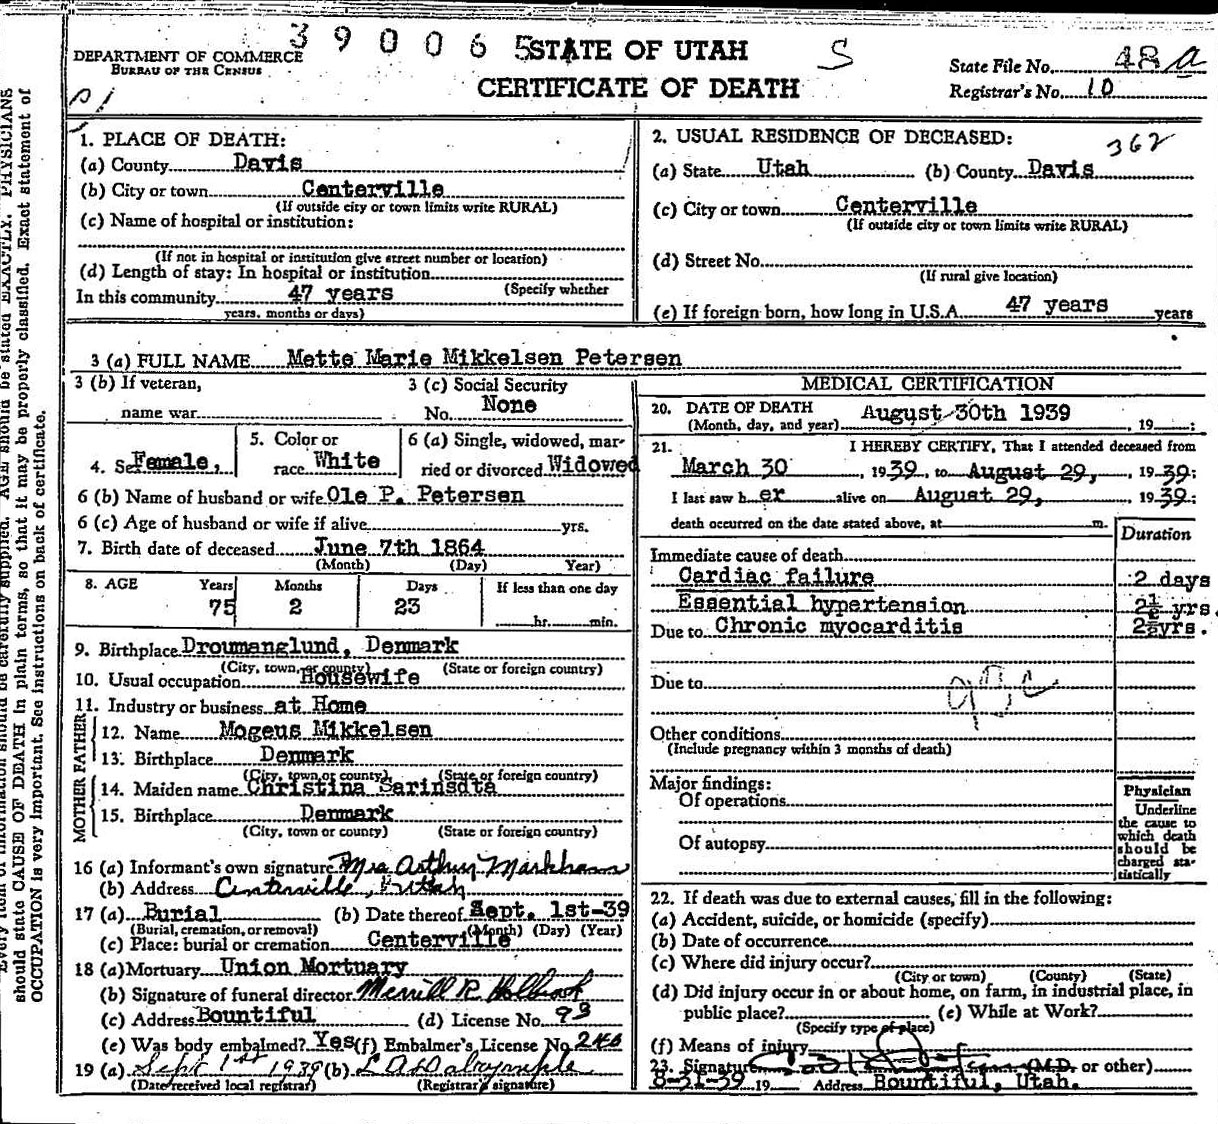 390065
DEPARTMENT OF COMMERCE
BUREAU OF THE CENSUS
STATE OF UTAH
CERTIFICATE OF DEATH
S
State File No. 48 a
Registrar's No. 10
1. PLACE OF DEATH:
(a) County Davis
(b) City or town Centerville
(If outside city or town limits write RURAL)
(c) Name of hospital or institution:
(If not in hospital or institution give street number or location)
(d) Length of stay: In hospital or institution
(Specify whether
In this community 47 years
years, months or days)
2. USUAL RESIDENCE OF DECEASED:
362
(a) State Utah (b) County Davis
(c) City or town Centerville
(If outside city or town limits write RURAL)
(d) Street No.
(If rural give location)
(e) If foreign born, how long in U.S.A. 47 years years
3 (a) FULL NAME Mette Marie Mikkelsen Petersen
3 (b) If veteran,
name war
3 (c) Social Security
No. None
4. Sex Female,
5. Color or
race White
6 (a) Single, widowed, mar-
ried or divorced Widowed
6 (b) Name of husband or wife Ole P. Petersen
6 (c) Age of husband or wife if alive yrs.
7. Birth date of deceased June 7th 1864
(Month) (Day) Year)
8. AGE Years Months Days If less than one day
75 2 23 hr. min.
9. Birthplace Droumanglund, Denmark
(City, town, or county) (State or foreign country)
10. Usual occupation Housewife
11. Industry or business at Home
FATHER
12. Name Mogeus Mikkelsen
13. Birthplace Denmark
(City, town or county) (State or foreign country)
MOTHER
14. Maiden name Christina Sarinsdta
15. Birthplace Denmark
(City, town or county) (State or foreign country)
16 (a) Informant's own signature Mrs Arthur Markham
(b) Address Centerville, Utah
17 (a) Burial (b) Date thereof Sept. 1st-39
(Burial, cremation, or removal) (Month) (Day) (Year)
(c) Place: burial or cremation Centerville
18 (a) Mortuary Union Mortuary
(b) Signature of funeral director Merrill R Holbrook
(c) Address Bountiful (d) License No. 93
(e) Was body embalmed? Yes (f) Embalmer's License No. 246
19 (a) Sept 1st 1939 (b) L A Dalrymple
(Date received local registrar) (Registrar's signature)
MEDICAL CERTIFICATION
20. DATE OF DEATH August 30th 1939
(Month, day, and year) , 19 :
21. I HEREBY CERTIFY, That I attended deceased from
March 30 , 1939, to August 29, , 1939;
I last saw her alive on August 29, , 1939;
death occurred on the date stated above, at m.
Duration
Immediate cause of death
Cardiac failure 2 days
Essential hypertension 2½ yrs.
Due to Chronic myocarditis 2½yrs.
Due to
Other conditions
(Include pregnancy within 3 months of death)
Major findings:
Of operations
Of autopsy
Physician
Underline
the cause to
which death
should be
charged sta-
tistically
22. If death was due to external causes, fill in the following:
(a) Accident, suicide, or homicide (specify)
(b) Date of occurrence
(c) Where did injury occur?
(City or town) (County) (State)
(d) Did injury occur in or about home, on farm, in industrial place, in
public place? (e) While at Work?
(Specify type of place)
(f) Means of injury
23. Signature (M.D. or other)
8-31-39 19 Address Bountiful, Utah.
should state CAUSE OF DEATH in plain terms, so that it may be properly classified. Exact statement of
OCCUPATION is very important. See instructions on back of certificate.